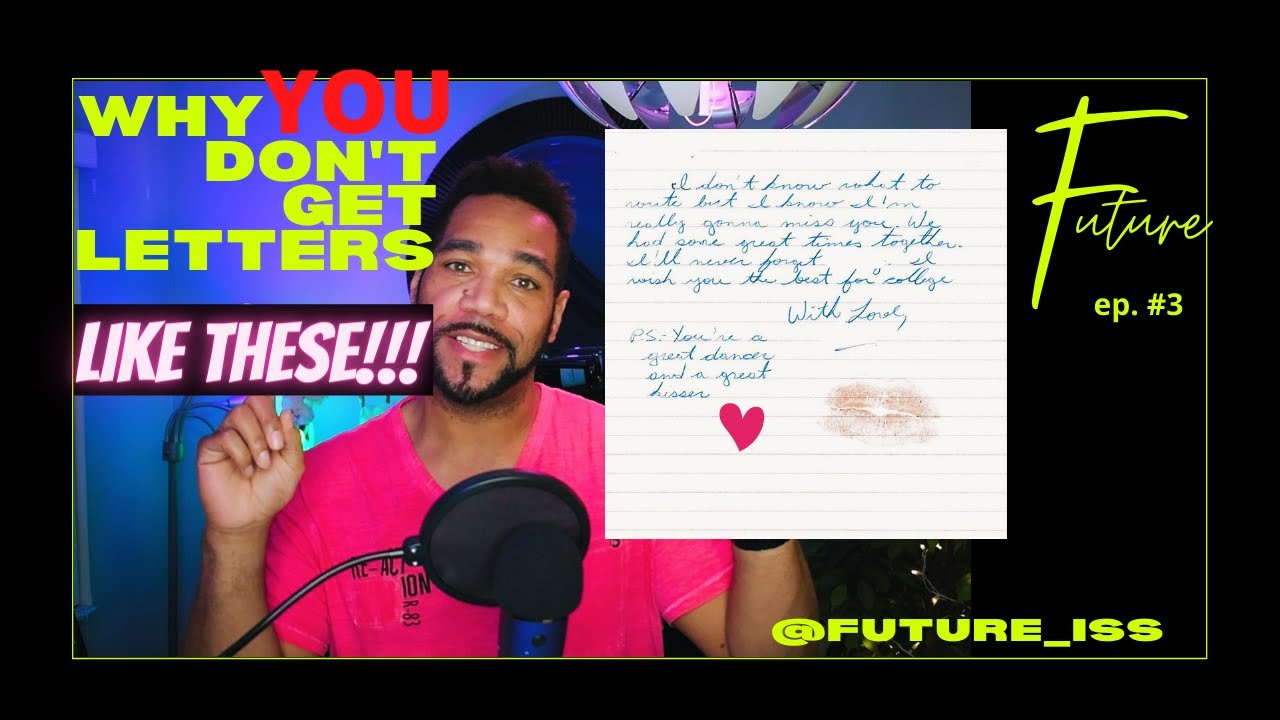 WHY YOU
DON'T
GET
LETTERS
LIKE THESE!!!
I don't know what to
write but I know I'm
really gonna miss you. We
had some great times together.
I'll never forget I
wish you the best for college
With Love,
P.S.- You're a
great dancer
and a great
kisser
RE-ACT
ION
R-83
Future
ep. #3
@FUTURE_ISS